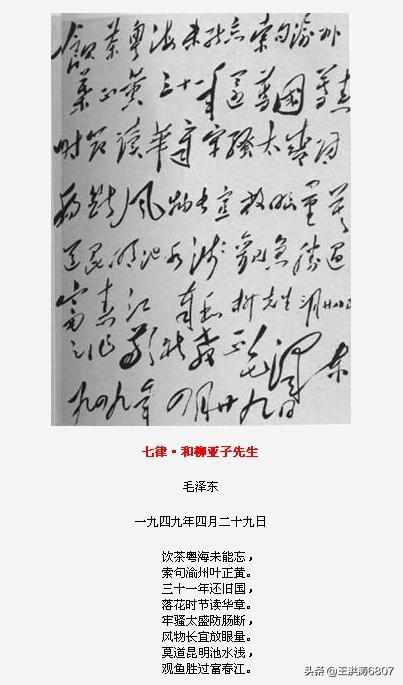 飲茶粤海未能忘索句渝州
葉正黄三十一年還舊國落花
时節读華章牢騷太盛防
腸斷风物长宜放眼量莫
道昆明池水浅觀魚勝過
富春江 奉和柳先生三月廿八日
之作敬祈教正 毛泽东
一九四九年四月廿九日
七律·和柳亚子先生
毛泽东
一九四九年四月二十九日
饮茶粤海未能忘，
索句渝州叶正黄。
三十一年还旧国，
落花时节读华章。
牢骚太盛防肠断，
风物长宜放眼量。
莫道昆明池水浅，
观鱼胜过富春江。
头条 @王洪涛6807